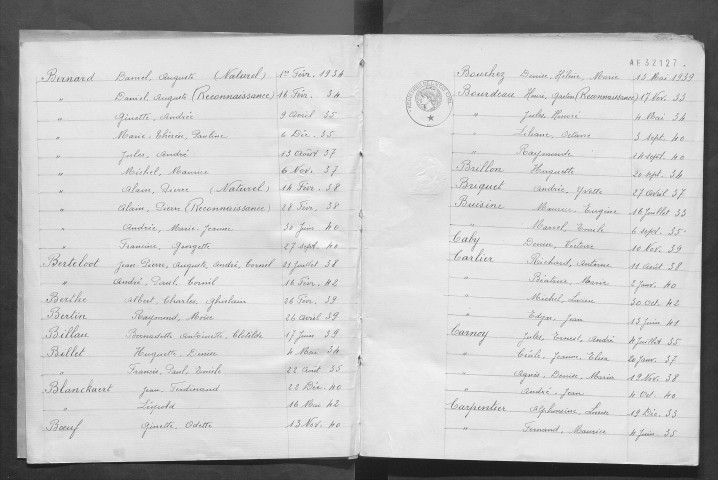 Bernard Daniel, Auguste (Naturel) 1er Févr. 1934
" Daniel, Auguste (Reconnaissance) 16 Févr. 34
" Ginette, Andrée 9 Avril 35
" Marie-Thérèse, Pauline 6 Déc. 35
" Jules, André 13 Août 37
" Michel, Maurice 6 Nov. 37
" Alain, Pierre (Naturel) 14 Févr. 38
" Alain, Pierre (Reconnaissance) 28 Févr. 38
" Andrée, Marie-Jeanne 30 Juin 40
" Francine, Georgette 27 Sept. 40
Berteloot Jean Pierre, Auguste, André, Cornil 21 Juillet 38
" André, Paul, Cornil 16 Févr. 42
Berthe Albert, Charles, Ghislain 26 Févr. 39
Bertin Raymond, 26 Avril 39
Billau Bernadette Antoinette, Clotilde 17 Juin 39
Billet Huguette, Denise 4 Mai 34
" Francis, Paul, Emile 22 Août 35
Blanckaert Jean, Ferdinand 22 Déc. 40
" Léopold 16 Mai 42
Bœuf Ginette, Odette 13 Nov. 40
AE 32127
Bouchez Denise, Hélène, Marie 13 Mai 1939
Bourdeau Henri, Gaston (Reconnaissance) 17 Nov. 33
" Jules, Henri 4 Mai 34
" Liliane, Octavie 3 Sept. 40
" Raymonde 14 Sept. 40
Brillon Huguette 20 Sept. 34
Briquet Andrée, Yvette 27 Avril 37
Buisine Maurice, Eugène 16 Juillet 33
" Marcel, Emile 6 Sept. 35
Caby Denise, Victoire 10 Nov. 39
Carlier Richard, Antoine 11 Août 38
" Béatrice, Marie 2 Janv. 40
" Michel, Lucien 30 Oct. 42
" Edgar, Jean 13 Juin 41
Carnoy Jules, Ernest, André 4 Juillet 35
" Cécile, Jeanne, Elisa 20 Janv. 37
" Agnès, Denise, Maria 12 Nov. 38
" André, Jean 4 Oct. 40
Carpentier Alphonsine, Louise 19 Déc. 33
" Fernand, Maurice 4 Juin 35